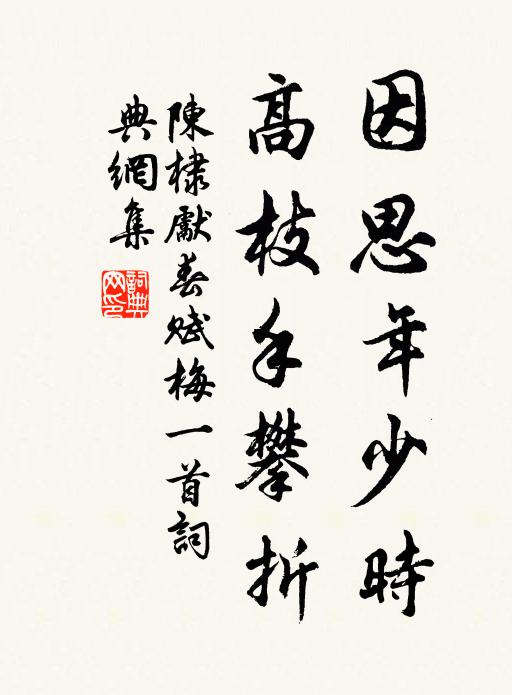 因思年少時
高枝手攀折
陳棣獻春賦梅一首詞
典網集
詞典網印